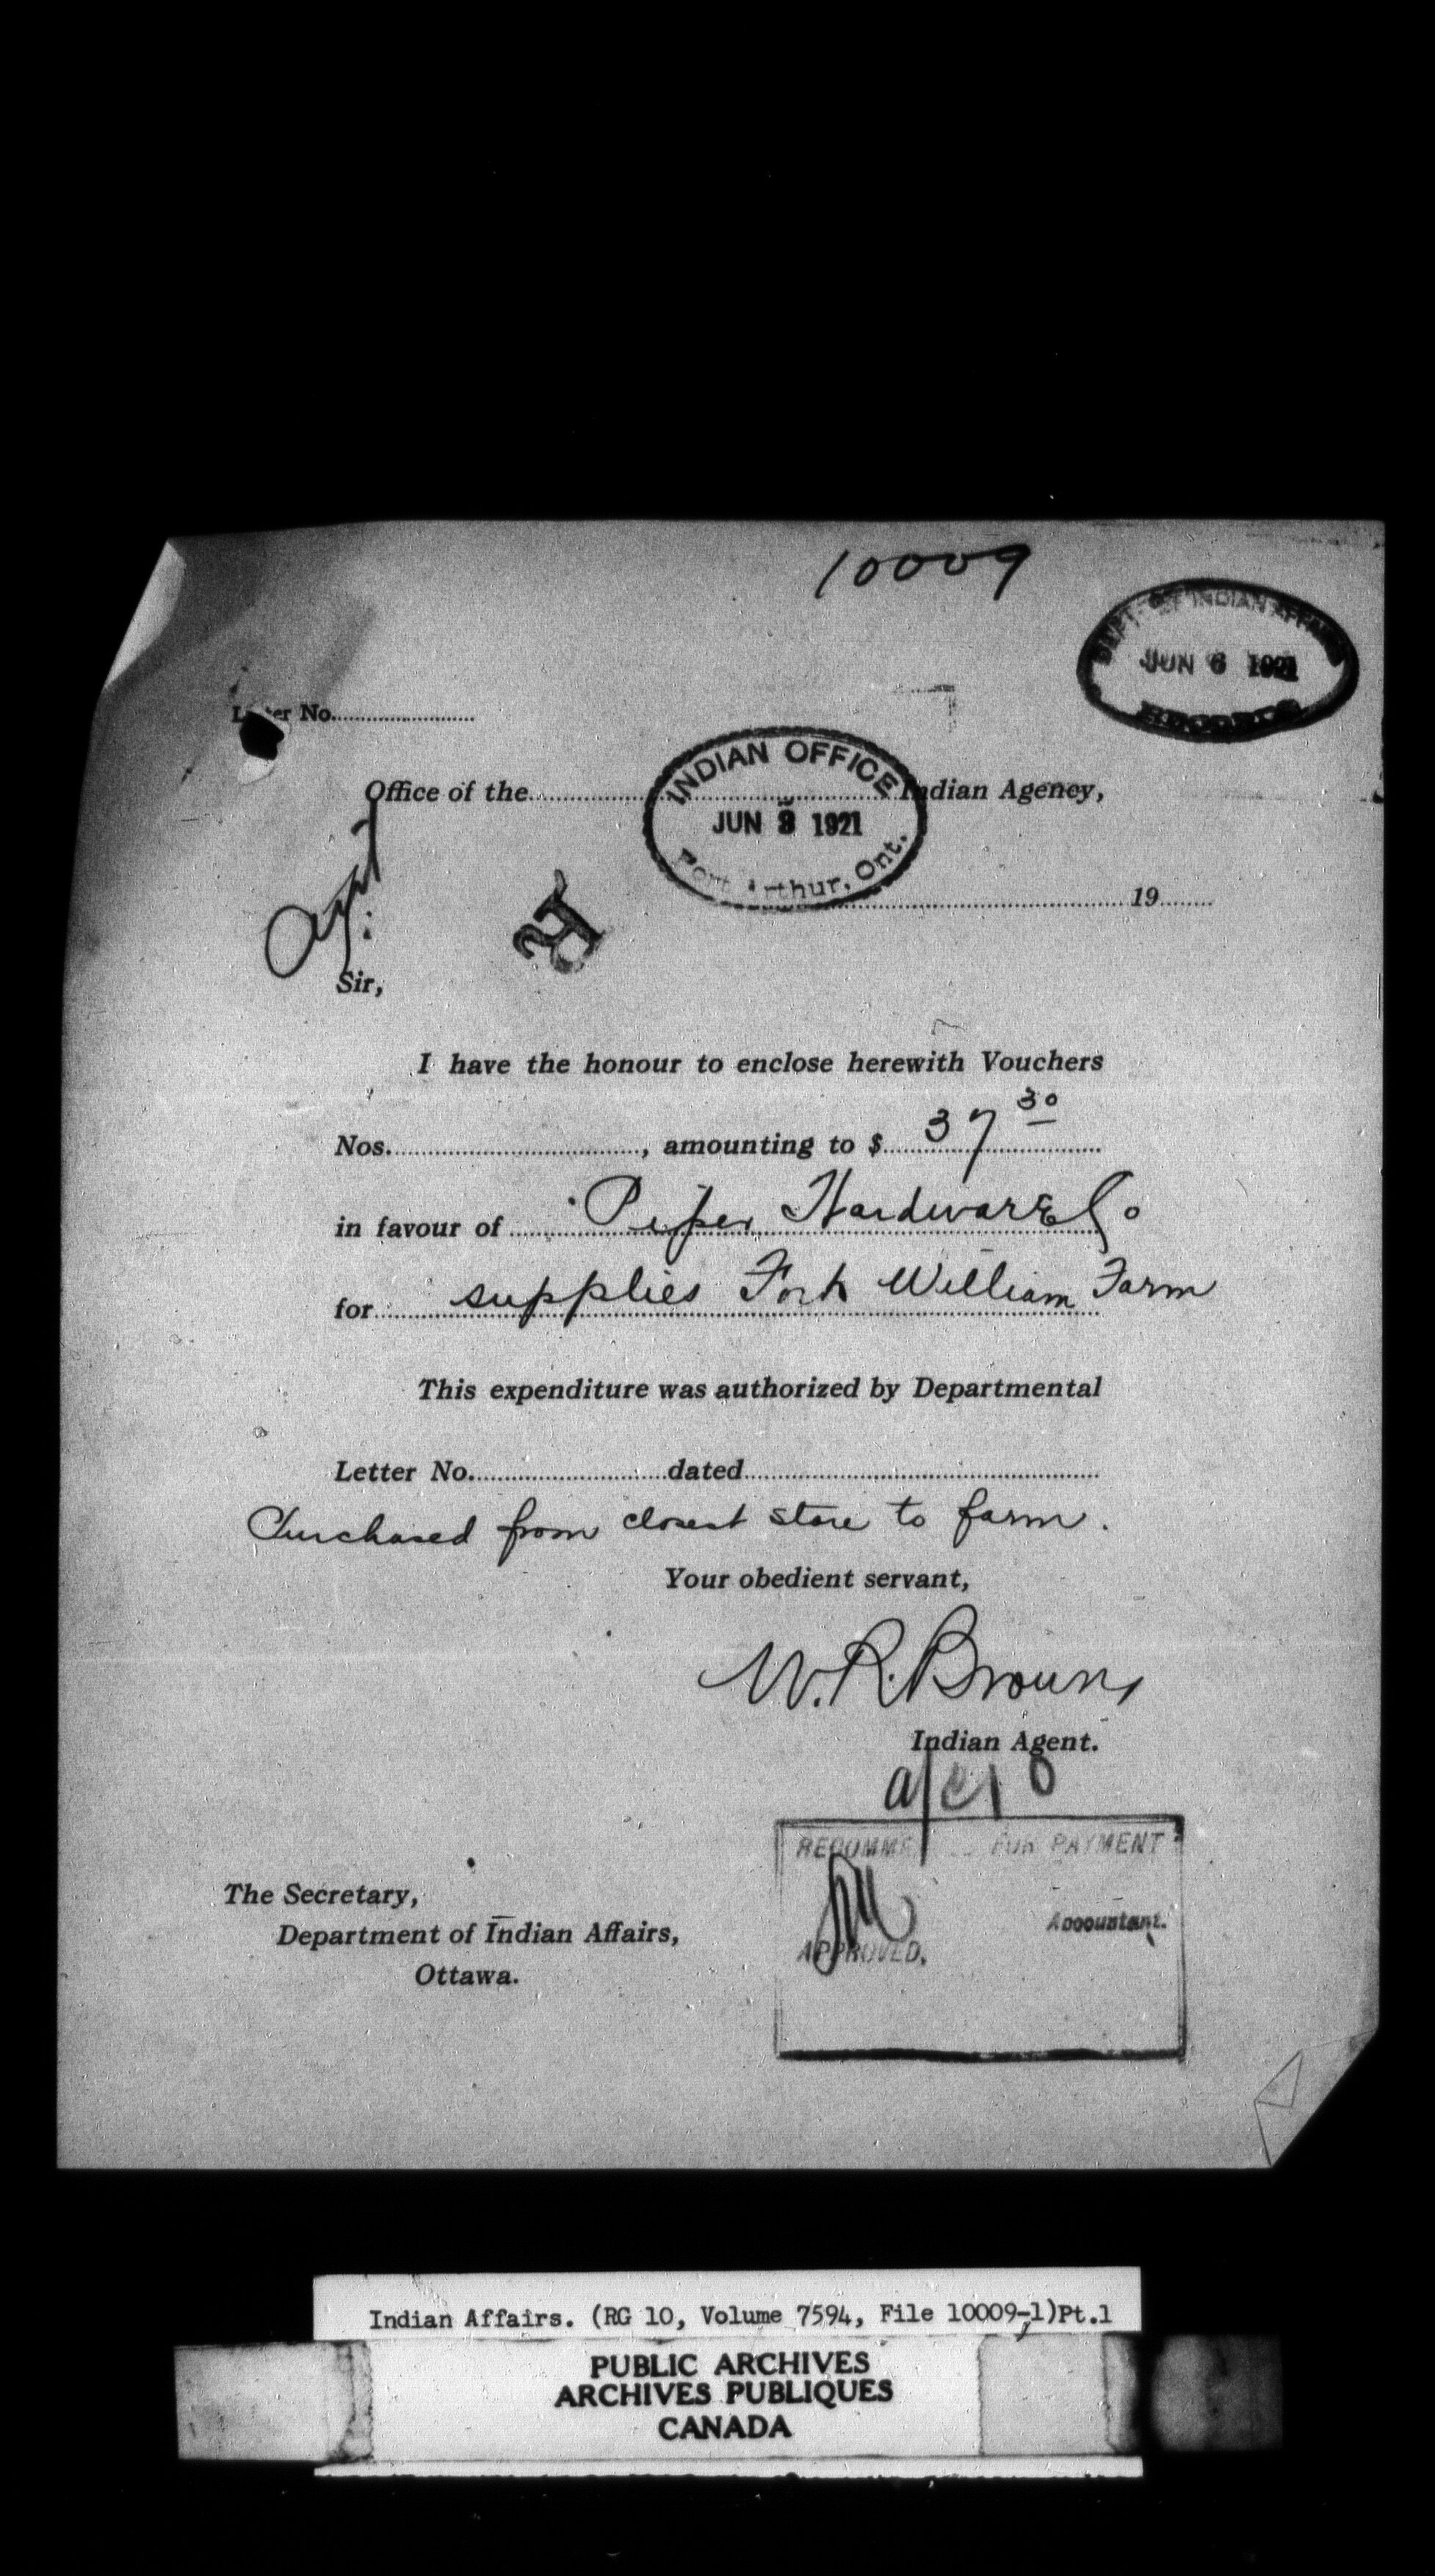 10009
DEPT. OF INDIAN AFFAIRS
JUN 6 1921
RECORDS
Letter No.
Office of the Indian Agency,
INDIAN OFFICE
JUN 3 1921
Port Arthur, Ont.
19
R
Sir,
I have the honour to enclose herewith Vouchers
Nos. , amounting to $ 37 30
in favour of Piper Hardware Co
for supplies Fort William Farm
This expenditure was authorized by Departmental
Letter No. dated
Purchased from closest store to farm.
Your obedient servant,
W.R. Brown
Indian Agent.
RECOMME FOR PAYMENT
Accountant.
APPROVED.
The Secretary,
Department of Indian Affairs,
Ottawa.
Indian Affairs. (RG 10, Volume 7594, File 10009-1)Pt.1
PUBLIC ARCHIVES
ARCHIVES PUBLIQUES
CANADA